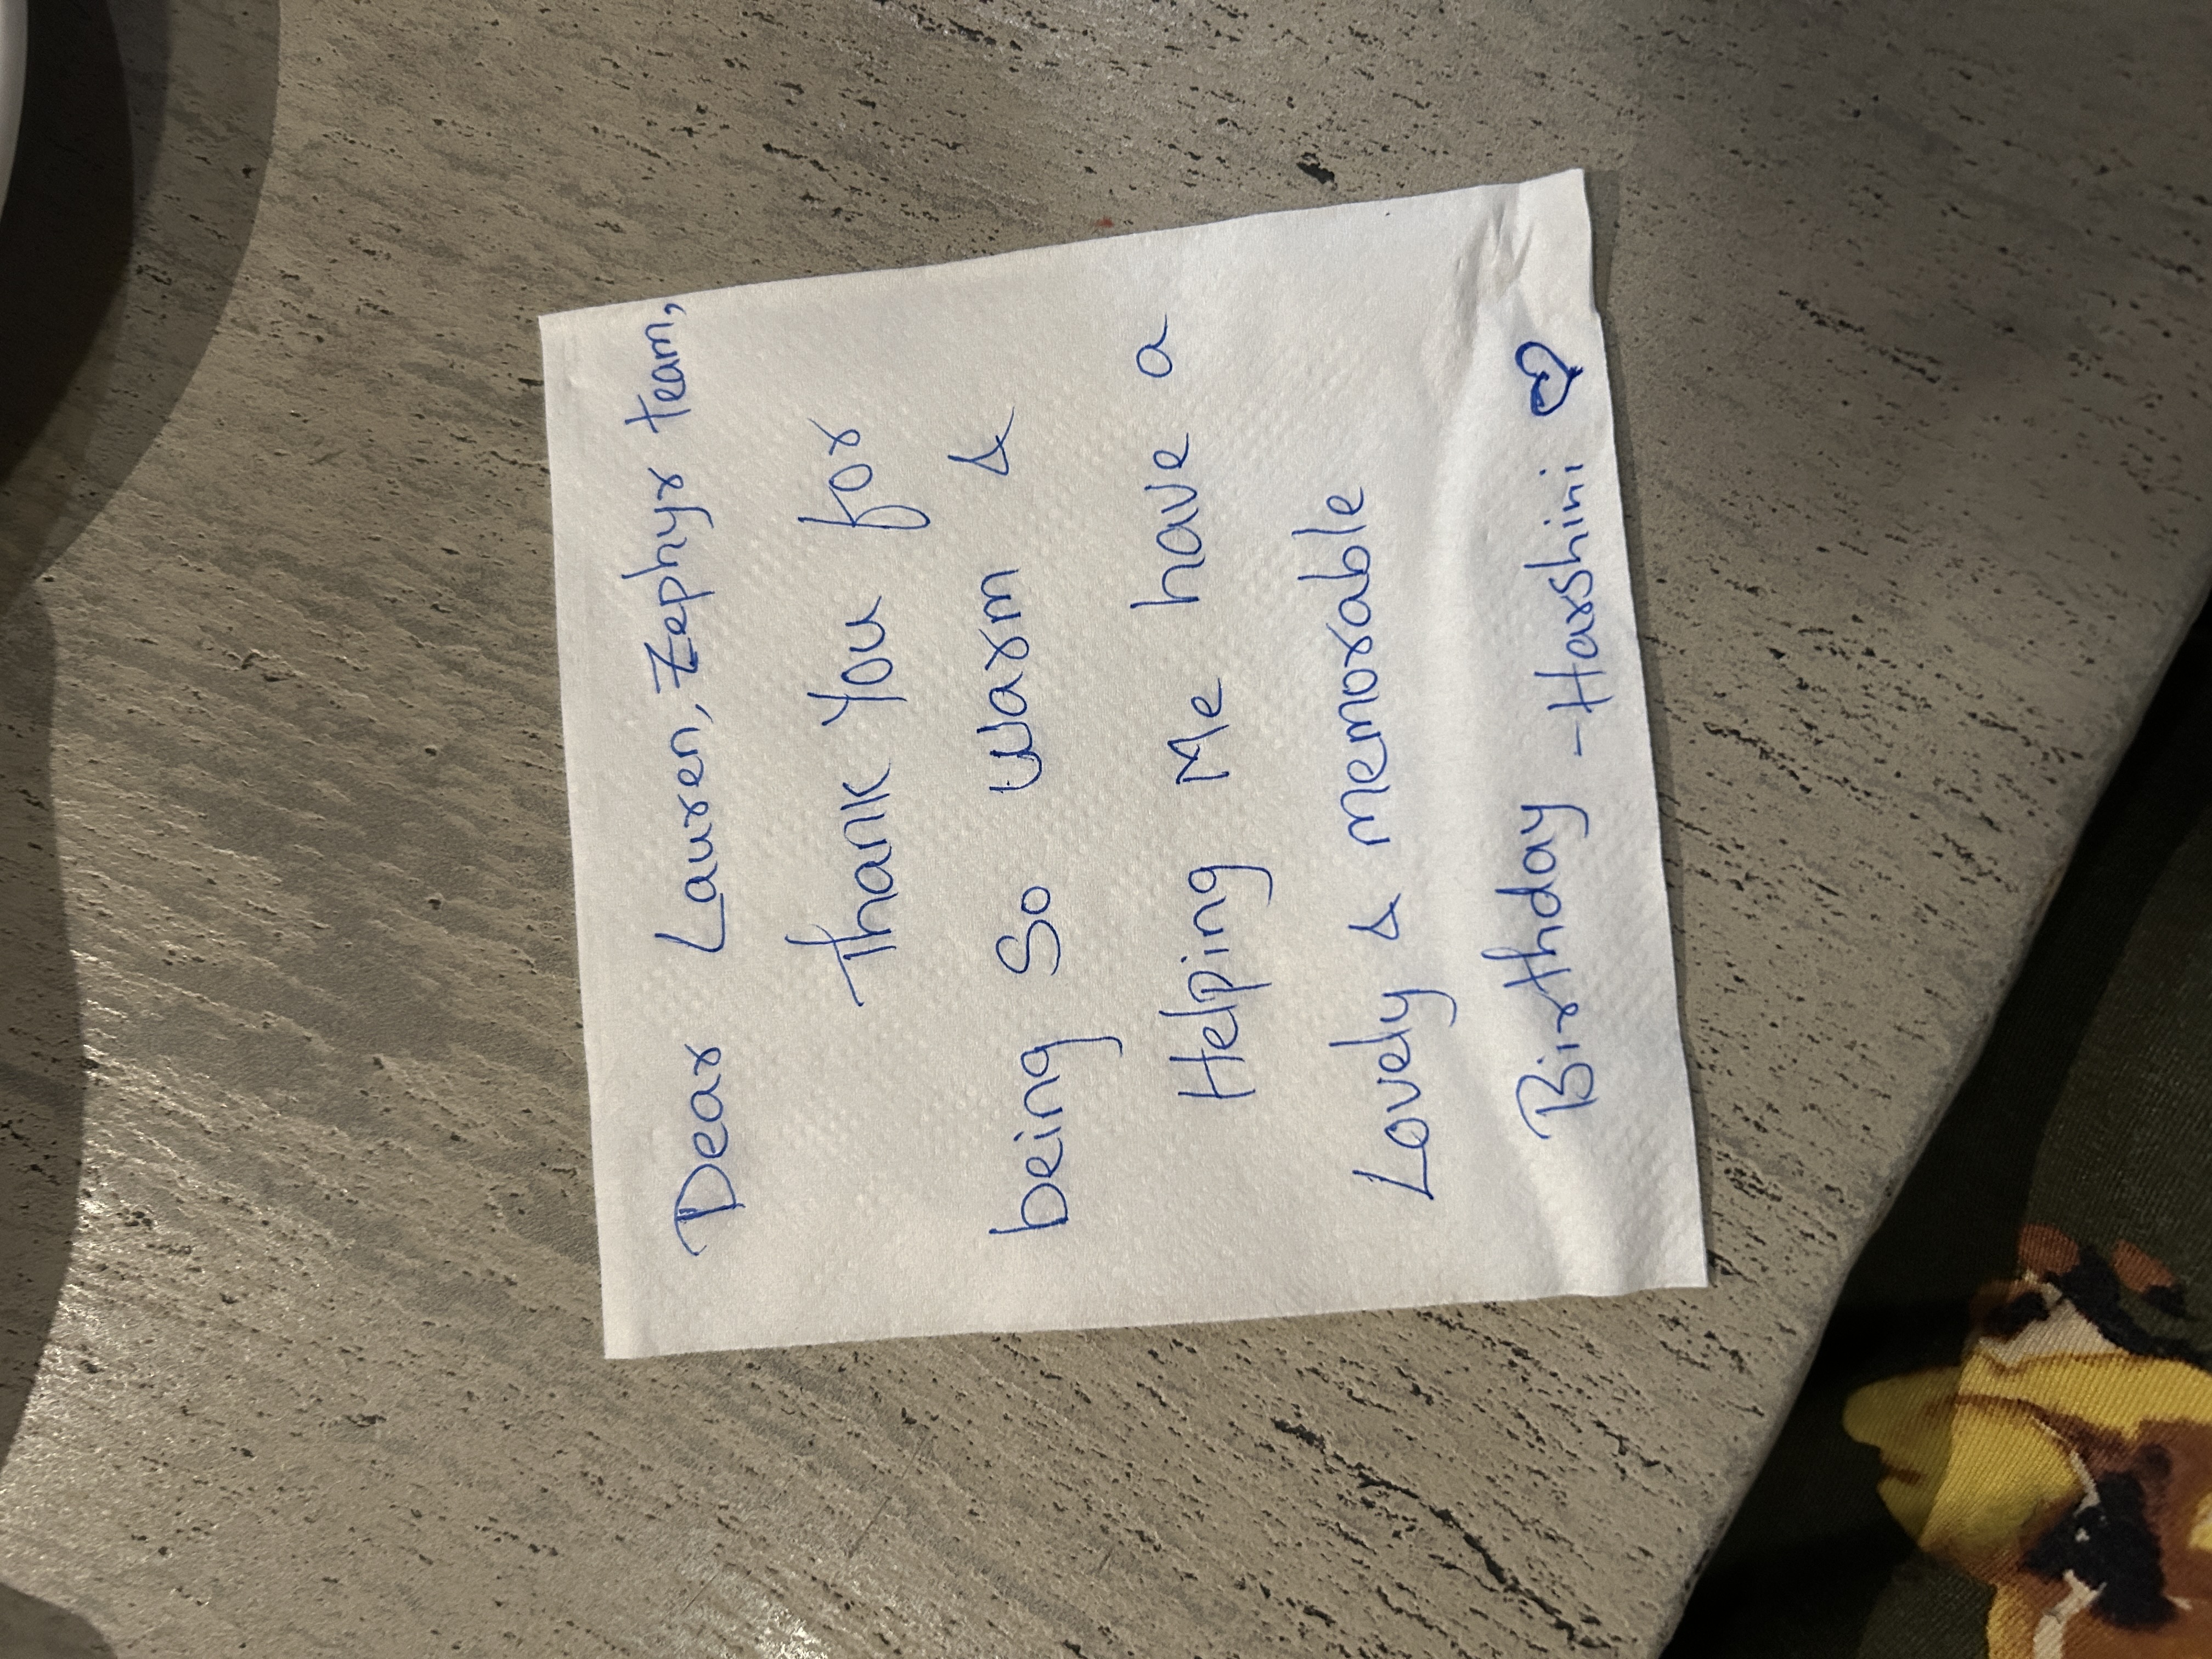 Dear Lauren, Zephyr team,
Thank You for
being So warm &
Helping Me have a
Lovely & memorable
Birthday -Harshini ♡